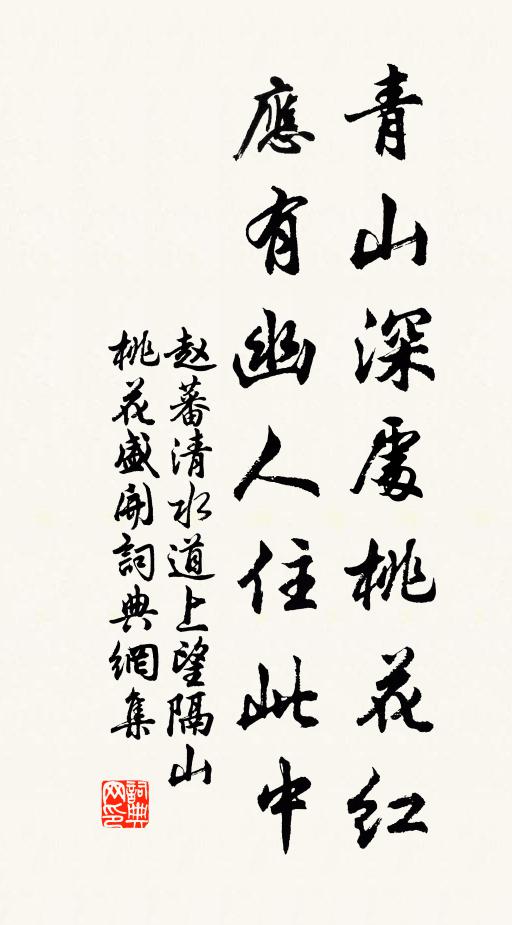 青山深處桃花红
應有幽人住此中
赵蕃清水道上望隔山
桃花盛開詞典網集
詞典
网印